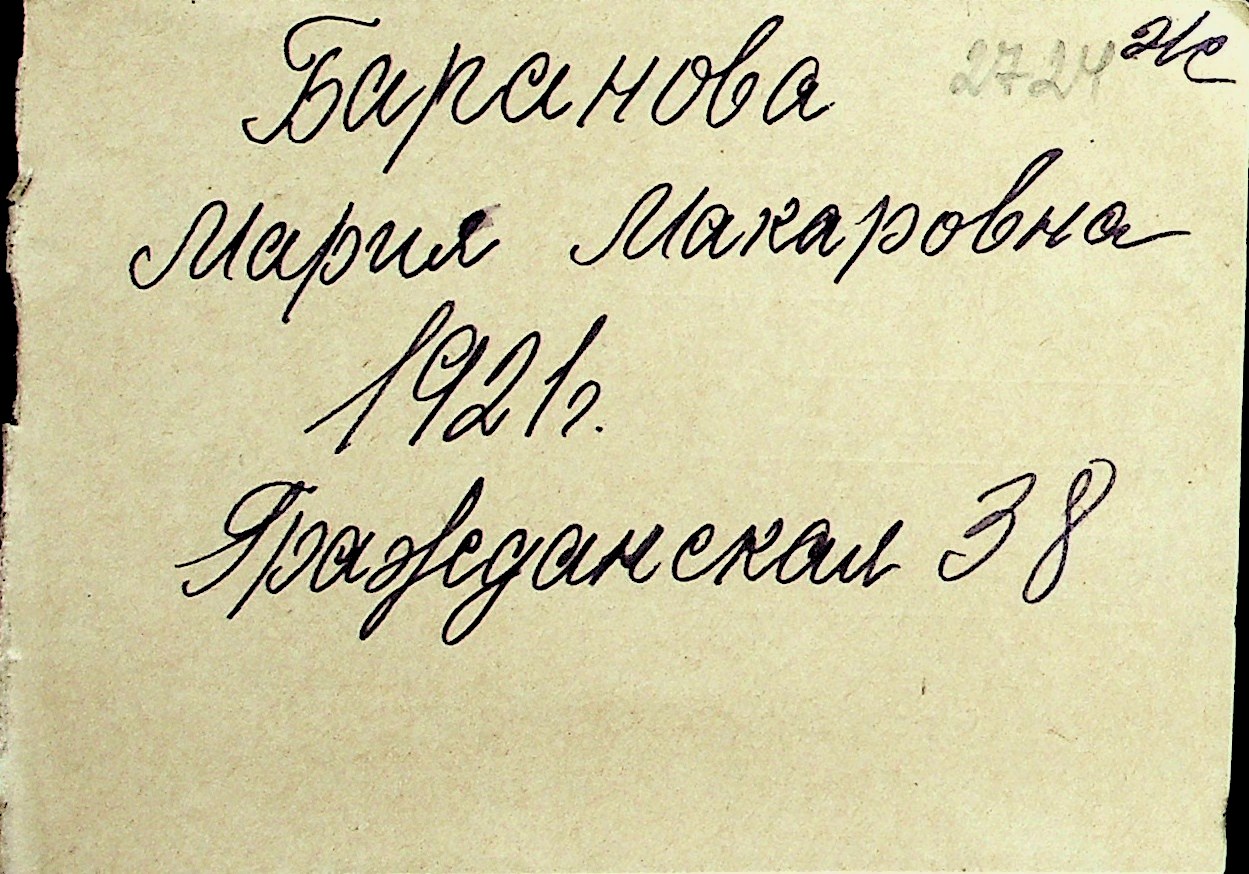 Баранова 2724 ж
Мария Макаровна
1921г.
Гражданская 38